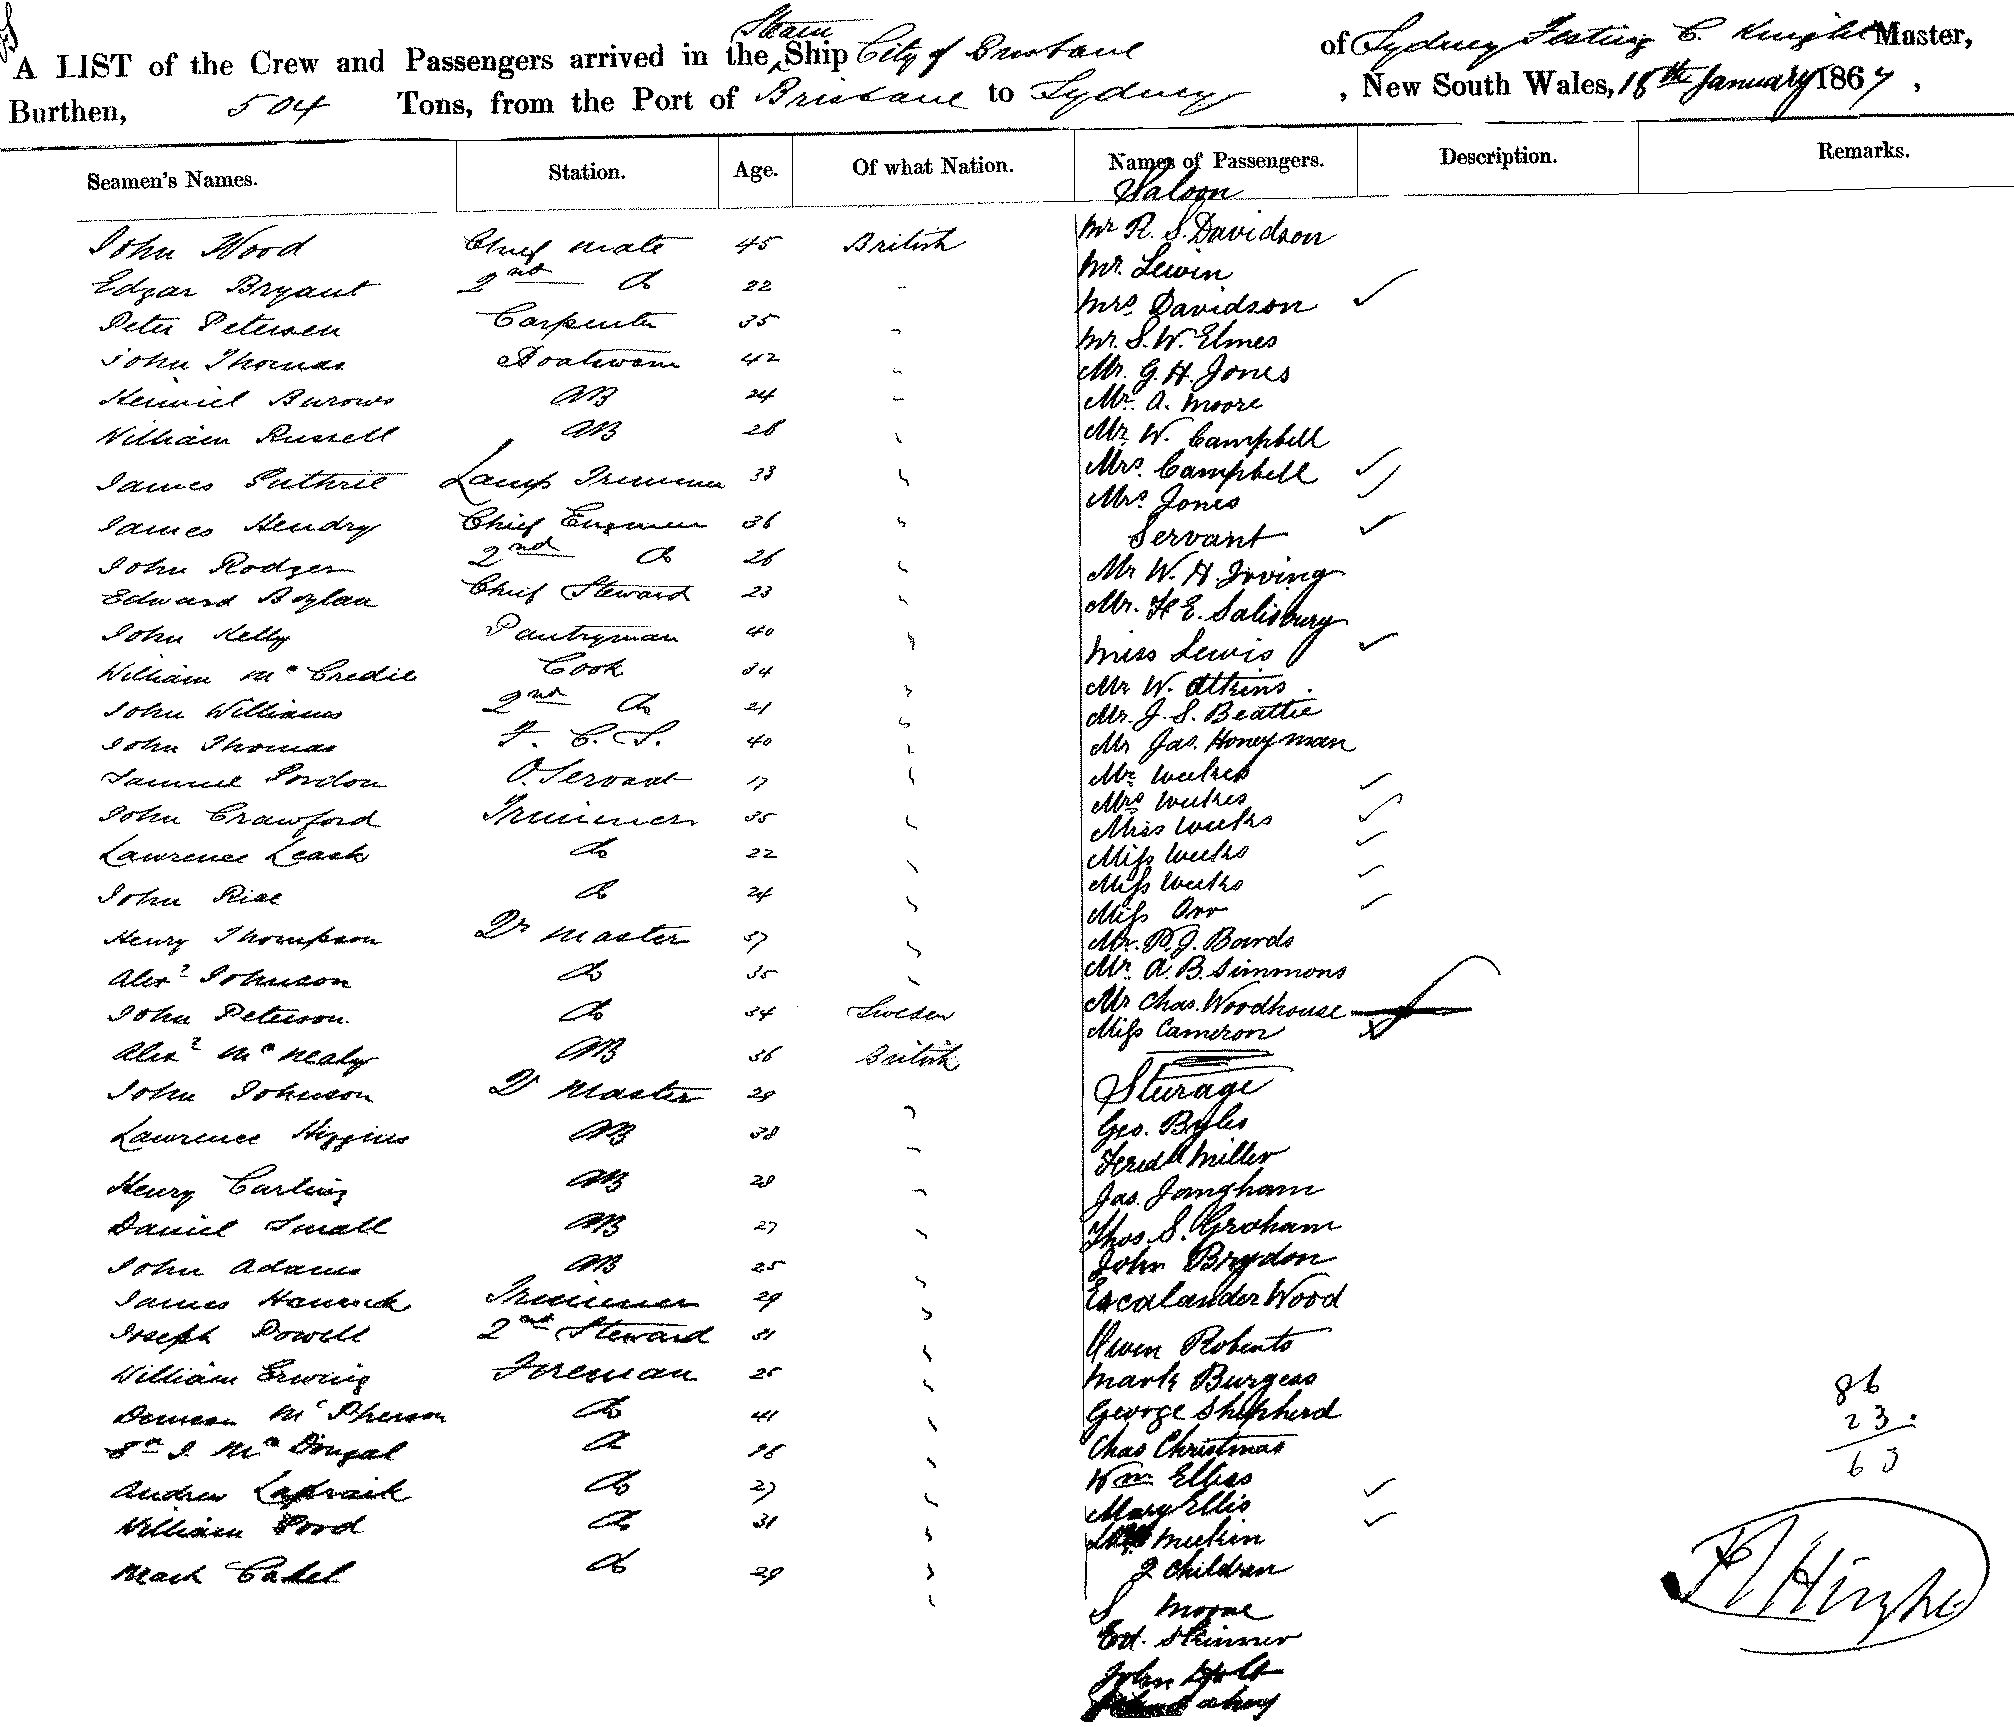 Steam
A LIST of the Crew and Passengers arrived in the Ship City of Brisbane of Sydney C. Knight Master,
Burthen, 504 Tons, from the Port of Brisbane to Sydney , New South Wales, 18th January 1867 ,
Seamen's Names. Station. Age. Of what Nation. Names of Passengers. Description. Remarks.
Saloon
John Wood Chief Mate 45 British Mr R. S. Davidson
Edgar Bryant 2nd Do 22 Mr. Lewin
Peter Petersen Carpenter 35 Mrs Davidson
John Thomas Boatswain 42 Mr. S. W. Elmes
Mr. G. H. Jones
Burows AB 24 Mr. A. Moore
William Russell AB 28 Mr. W. Campbell
James Guthrie Lamp Trimmer 33 Mrs. Campbell
Mrs Jones
James Hendry Chief Engineer 36 Servant
John Rodger 2nd Do 26 Mr W. H. Irving
Edward Boylan Chief Steward 23 Mr. H E. Salisbury
John Kelly Pantryman 40 Miss Lewis
William McCredie Cook 34 Mr W. Atkins.
John Williams 2nd Do 21 Mr. J. S. Beattie
John Thomas F. C. S. 40 Mr Jas. Honeyman
Samuel Gordon O. Servant 17 Mr Weekes
Mrs Weekes
John Crawford Trimmer 35 Miss Weekes
Lawrence Leask do 22 Miss Weekes
John Rise do 24 Miss Weekes
Miss Orr
Henry Thompson Qr Master 37 Mr. P. J. Bards
Alexr Johnson do 35 Mr. A. B. Simmons
John Peterson do 34 Sweden Mr Chas. Woodhouse
Miss Cameron
Alexr McNealy AB 36 British
John Johnson Qr Master 29 Sturage
Lawrence Higgins AB 38 Geo. Byles
Fredk Miller
Henry Carling AB 28 Jas. Jamgham
Daniel Small AB 27 Thos. S. Graham
John Adams AB 25 John Brydon
James Trimmer 29 Escalander Wood
Joseph Powell 2nd Steward 31 Owen Roberts
William Erwing Foreman 25 Mark Burgess
Duncan McPherson do 41 George Shipherd
McDougal do 36 Chas Christmas
Andrew Lapraik do 27 Wm Elliss
Mary Ellis
William Pood do 31 Meekin
Mark Cahel do 29 2 Children
S Moore
Ed. Skinner
John Holt
86
23
63